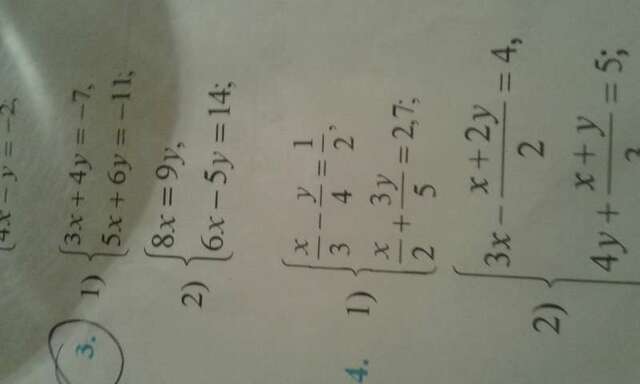 4x − y = −2;
3. 1) {3x + 4y = −7,
5x + 6y = −11;
2) {8x = 9y,
6x − 5y = 14;
4. 1) {x/3 − y/4 = 1/2,
x/2 + 3y/5 = 2,7;
2) {3x − (x + 2y)/2 = 4,
4y + (x + y)/ = 5;